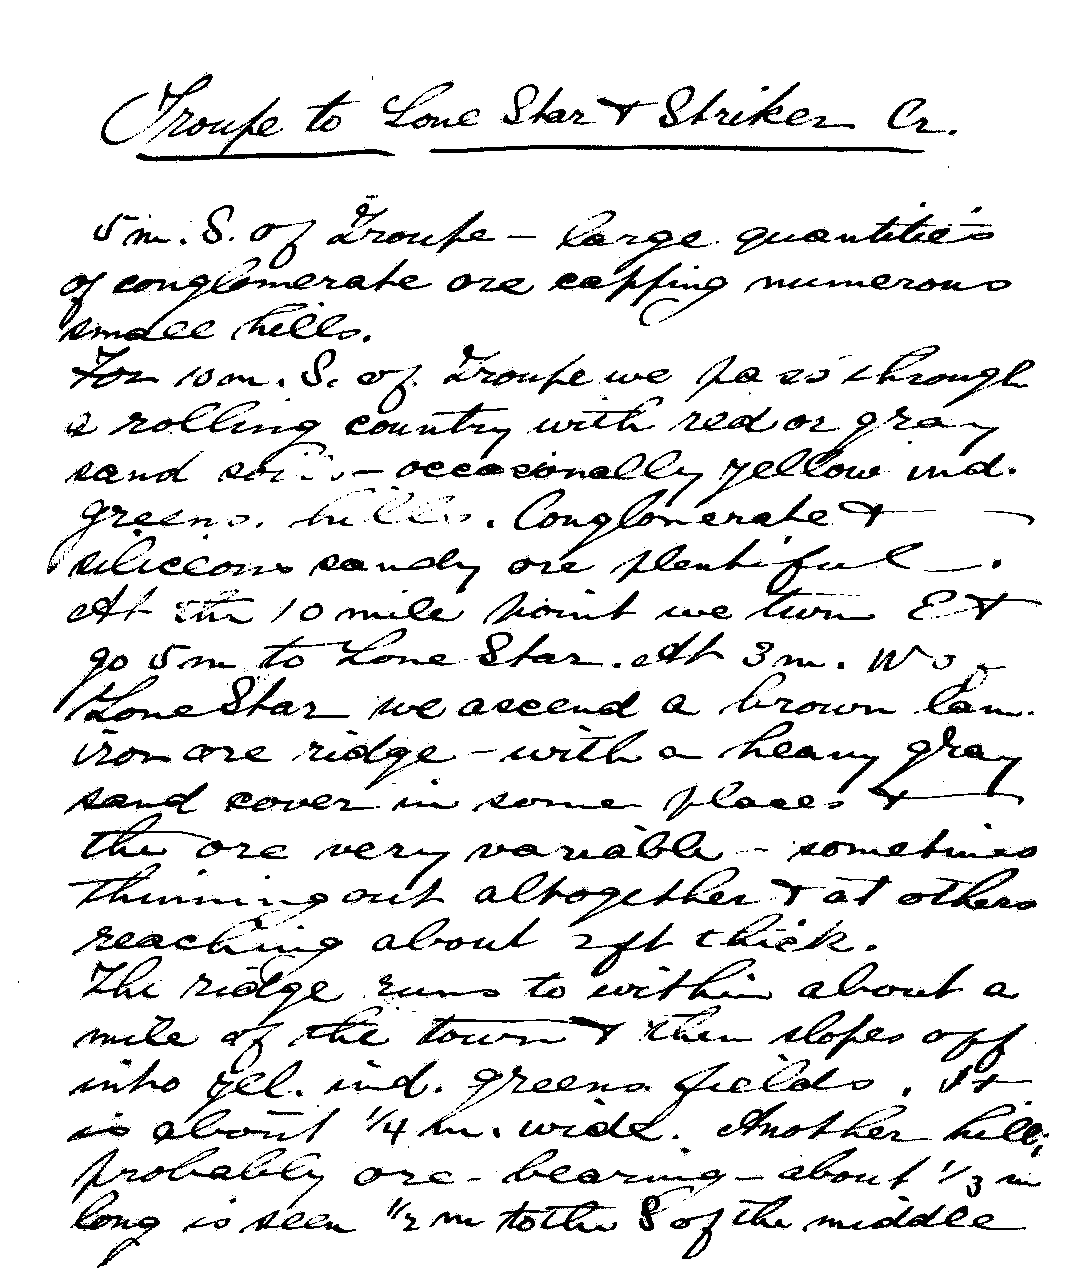 Troupe to Lone Star & Striker Cr.
5 m. S. of Troupe – large quantities
of conglomerate ore capping numerous
small hills.
For 10 m. S. of Troupe we pass through
a rolling country with red or gray
sand soils – occasionally yellow ind.
greens. hills. Conglomerate &
siliceous sandy ore plentiful –.
At the 10 mile point we turn E &
go 5 m to Lone Star. At 3 m. W of
Lone Star we ascend a brown lam.
iron ore ridge – with a heavy gray
sand cover in some places &
the ore very variable – sometimes
thinning out altogether & at others
reaching about 2 ft thick.
The ridge runs to within about a
mile of the town & then slopes off
into yel. ind. greens fields. It
is about 1/4 m. wide. Another hill,
probably ore-bearing – about 1/3 m
long is seen 1/2 m to the S of the middle